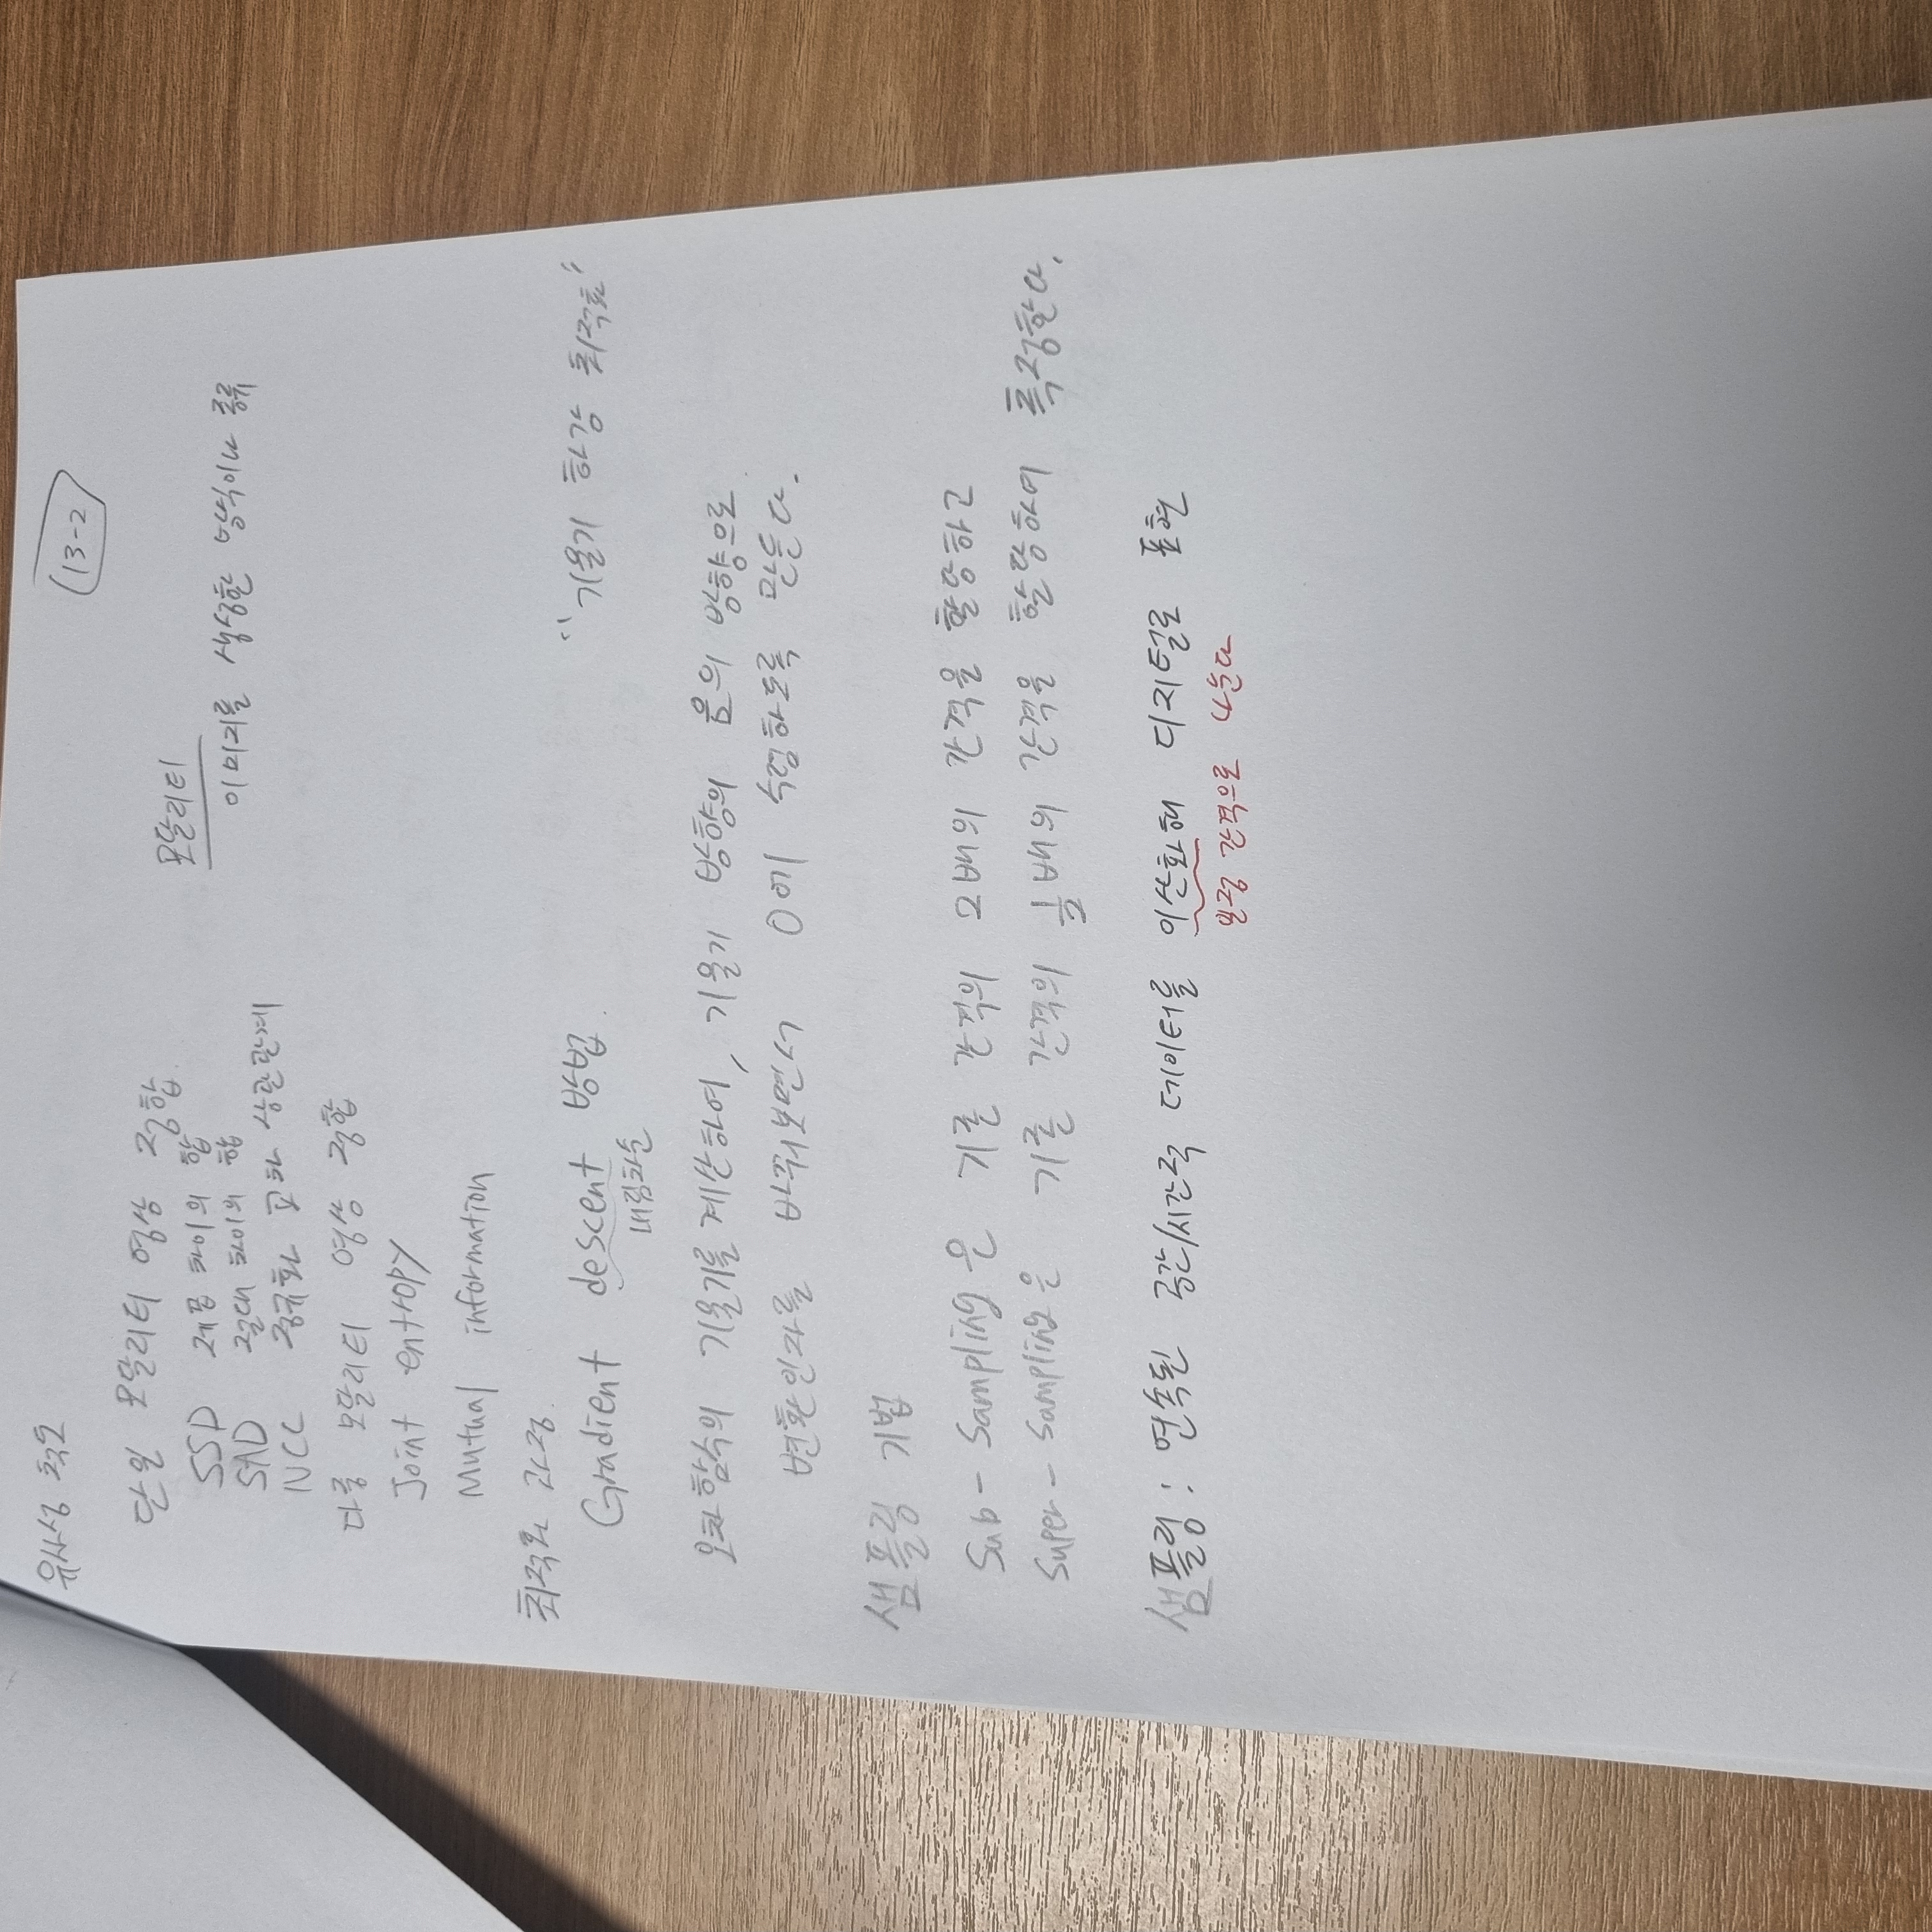 유사성 척도
13-2
단일 모달리티 영상 정합.
SSD 제곱 차이의 합
SAD 절대 차이의 합
NCC 정규화 교차 상관관계
모달리티
이미지를 생성한 방식이나 종류
다중 모달리티 영상 정합
Joint entropy
Mutual information
최적화 과정.
Gradient descent 방법.
내림차순
"기울기 하강 최적화"
오차함수의 기울기를 계산하여, 기울기 방향의 음의 방향으로
변환인자를 바꿔보면서 0에 수렴하도록 만든다.
샘플링 기법
Sub-Sampling은 기존 간격의 2배의 간격을 할당하고
Super-Sampling은 기존 간격의 1/2배의 간격을 할당하여 특정한다.
샘플링 : 연속된 공간/시간적 데이터를 이산화해 디지털로 표현
일정 간격으로 나눈다